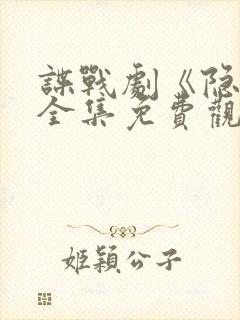 諜戰劇《隐
全集免費觀
姬穎公子